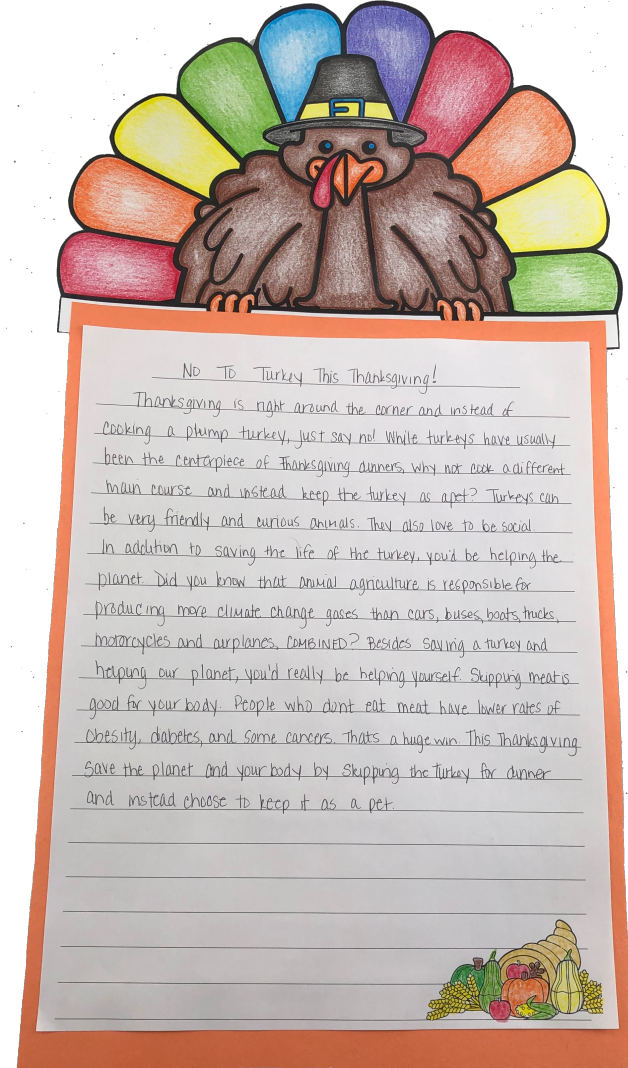 No To Turkey This Thanksgiving!
Thanksgiving is right around the corner and instead of
cooking a plump turkey, just say no! While turkeys have usually
been the centerpiece of Thanksgiving dinners, why not cook a different
main course and instead keep the turkey as a pet? Turkeys can
be very friendly and curious animals. They also love to be social.
In addition to saving the life of the turkey, you'd be helping the
planet. Did you know that animal agriculture is responsible for
producing more climate change gases than cars, buses, boats, trucks,
motorcycles and airplanes, COMBINED? Besides saving a turkey and
helping our planet, you'd really be helping yourself. Skipping meat is
good for your body. People who dont eat meat have lower rates of
obesity, diabetes, and some cancers. Thats a huge win. This Thanksgiving
save the planet and your body by skipping the turkey for dinner
and instead choose to keep it as a pet.